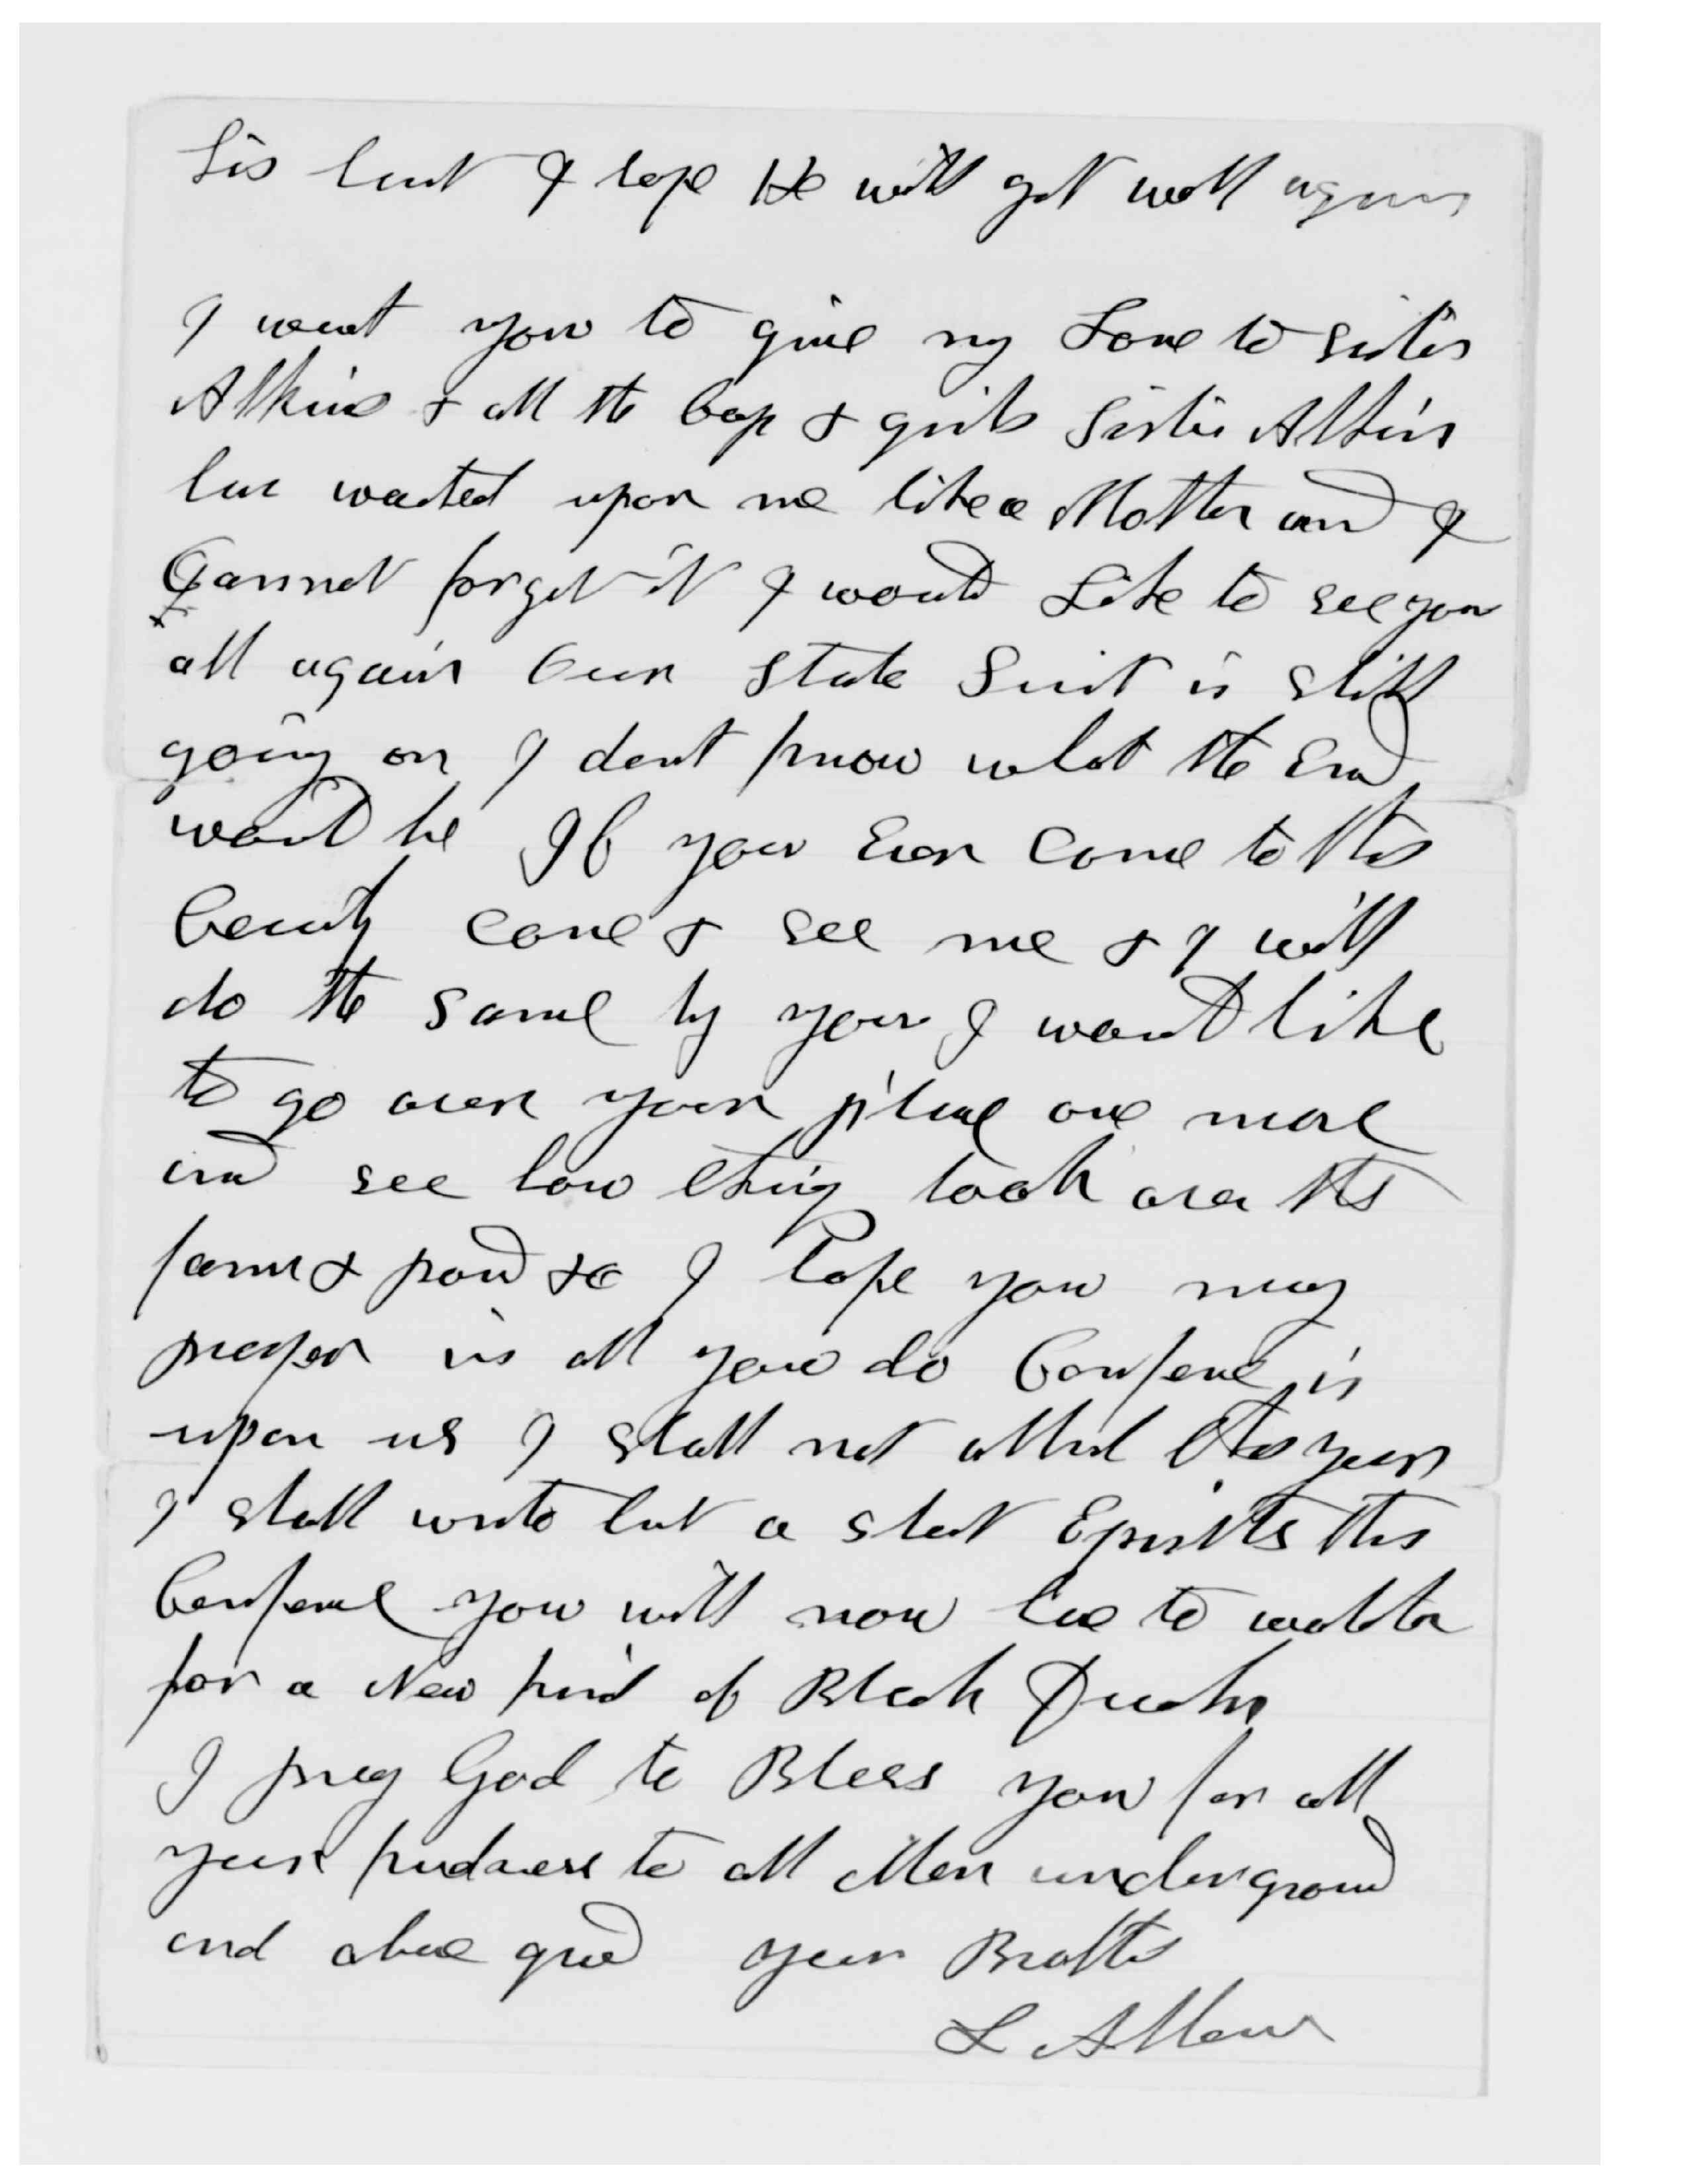 his hurt I hope He will get well again
I want you to give my Love to Sister
Atkins & all the boys & girls Sister Atkins
has waited upon me like a Mother and I
Cannot forget it I would Like to see you
all again Our State Suit is still
going on I dont know what the End
would be If you Ever come to this
County come & see me & I will
do the same by you I would like
to go over your place one more
and see how things look over the
farm & pond &c I hope you may
prosper in all you do Conference is
upon us I shall not attend this year
I shall write but a short Epistle this
Conference you will now have to
for a New kind of Black
I pray God to Bless you for all
your kindness to all Men underground
and above ground your Brother
L Allen